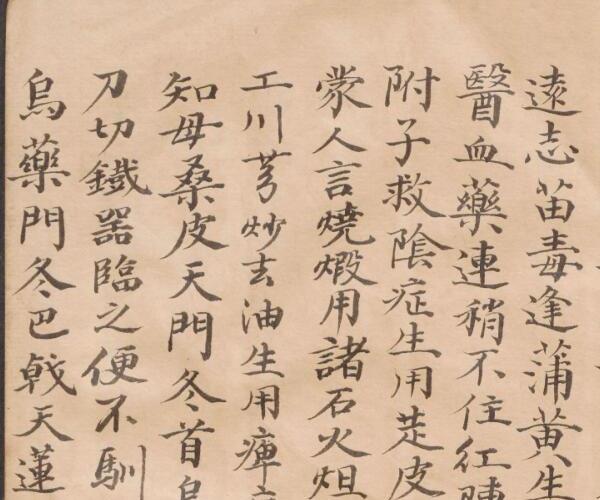 遠志苗毒逢蒲黄生
醫血藥連稍不住紅
附子救陰症生用走皮
蒙人言燒煅用諸石火
工川芎炒去油生用痺
知母桑皮天門冬首烏
刀切鐵器臨之便不馴
烏藥門冬巴戟天蓮